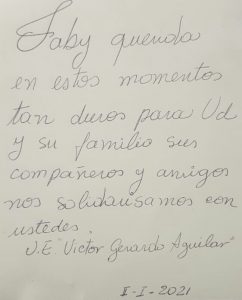 Faby querida
en estos momentos
tan duros para Ud
y su familia sus
compañeros y amigos
nos solidarisamos con
ustedes.
U.E. "Victor Gerardo Aguilar"
II-I-2021